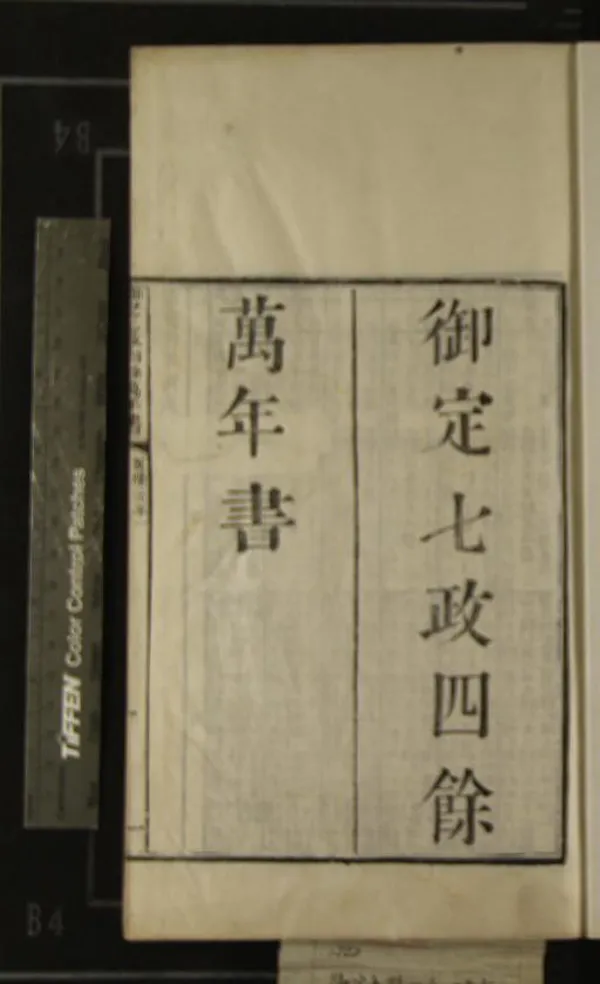 御定七政四餘
萬年書
TIFFEN Color Control Patches
B4
B4